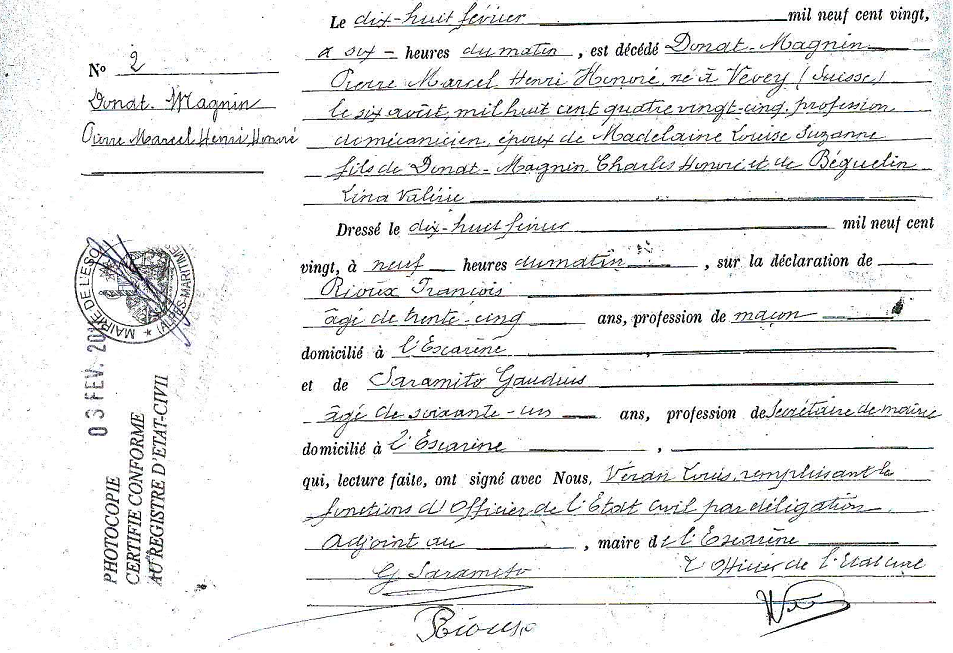 N° 2
Donat-Magnin
Pierre Marcel Henri Honoré
MAIRIE DE L'ESC
(ALPES-MARITIMES
03 FEV. 201
PHOTOCOPIE
CERTIFIE CONFORME
AU REGISTRE D'ETAT-CIVIL
Le dix-huit février mil neuf cent vingt,
à six heures du matin, est décédé Donat-Magnin
Pierre Marcel Henri Honoré, né à Vevey (Suisse)
le six août, mil huit cent quatre vingt-cinq, profession
de mécanicien, époux de Madelaine Louise Suzanne
fils de Donat-Magnin Charles Honoré et de Béguelin
Lina Valérie
Dressé le dix-huit février mil neuf cent
vingt, à neuf heures du matin, sur la déclaration de
Rioux François
âgé de trente-cinq ans, profession de maçon
domicilié à l'Escarène,
et de Saramito
âgé de soixante-un ans, profession de Secrétaire de mairie
domicilié à l'Escarène,
qui, lecture faite, ont signé avec Nous, Véran Louis, remplissant les
fonctions d'Officier de l'Etat Civil par délégation
Adjoint au, maire de l'Escarène
G Saramito L'Officier de l'Etat Civil
Rioux